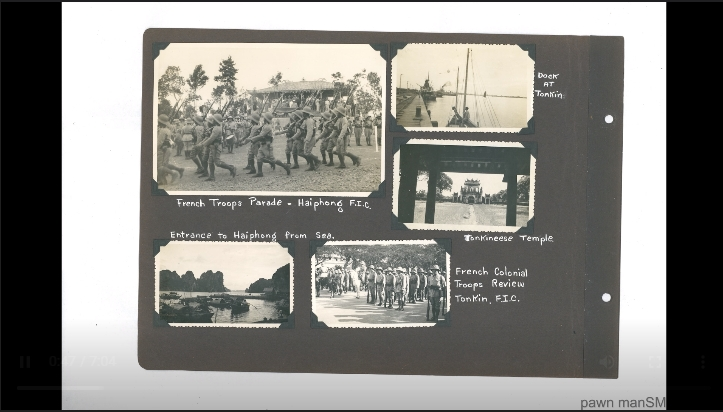 Dock
AT
Tonkin.
French Troops Parade - Haiphong F.I.C.
Entrance to Haiphong from Sea.
Tonkineese Temple
French Colonial
Troops Review
Tonkin, F.I.C.
pawn manSM